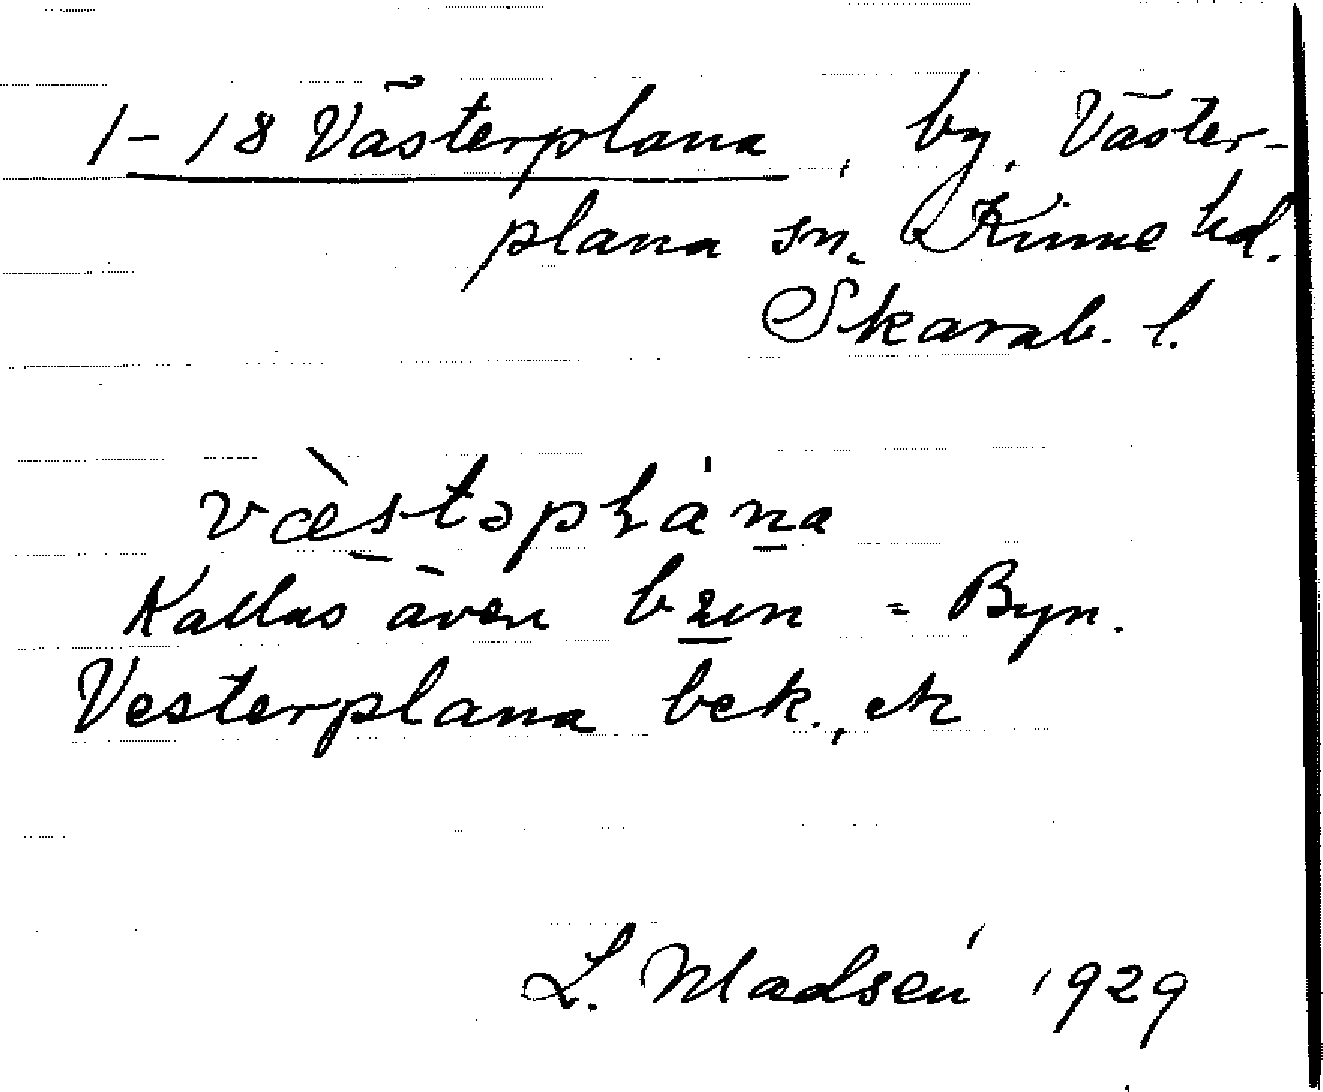 1-18 Västerplana, by, Väster-
plana sn. Kinne hd.
Skarab. l.
Kallas även = Byn.
Vesterplana bek., ek
L. Madsén 1929